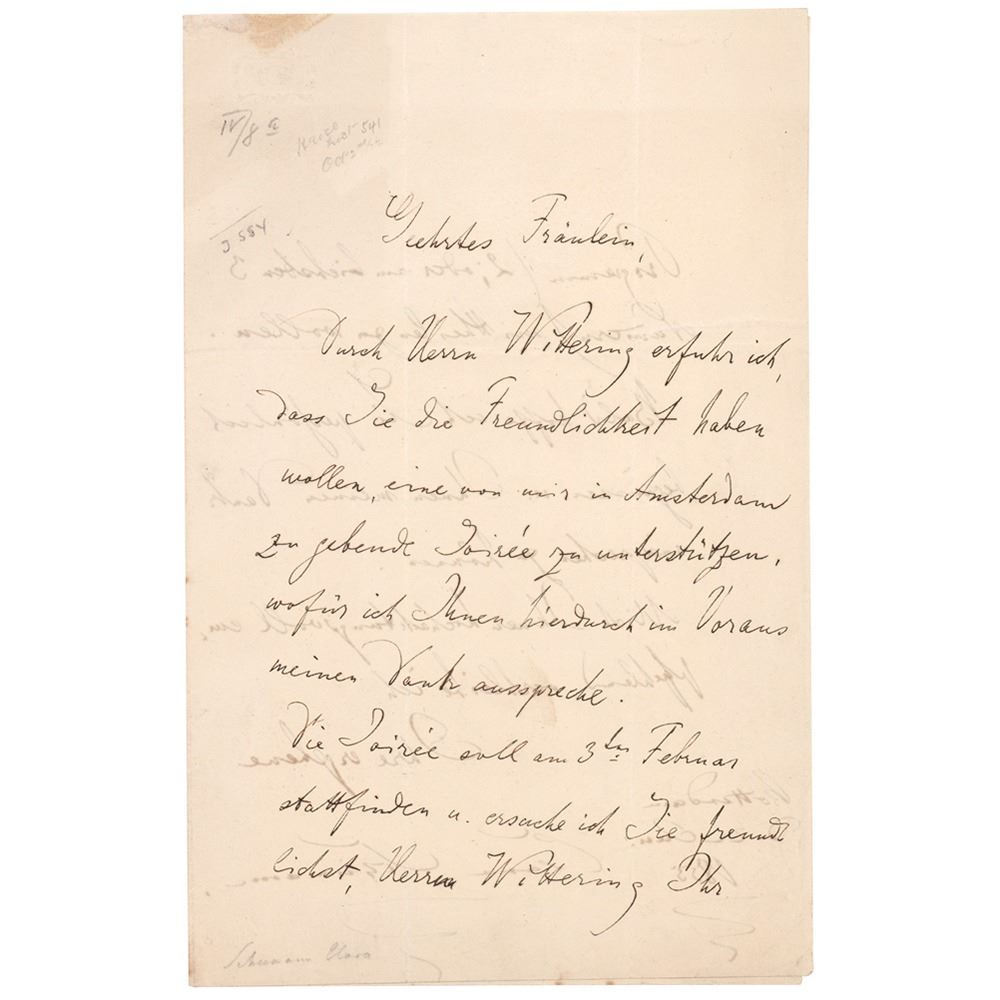 IV/8 a
541
J 584
Geehrtes Fräulein,
Durch Herrn Wittering erfuhr ich,
dass Sie die Freundlichkeit haben
wollen, eine von mir in Amsterdam
zu gebende Soirée zu unterstützen,
wofür ich Ihnen hierdurch im Voraus
meinen Dank ausspreche.
Die Soirée soll am 3ten Februar
stattfinden u. ersuche ich Sie freund
lichst, Herrn Wittering Ihr
Schumann Clara